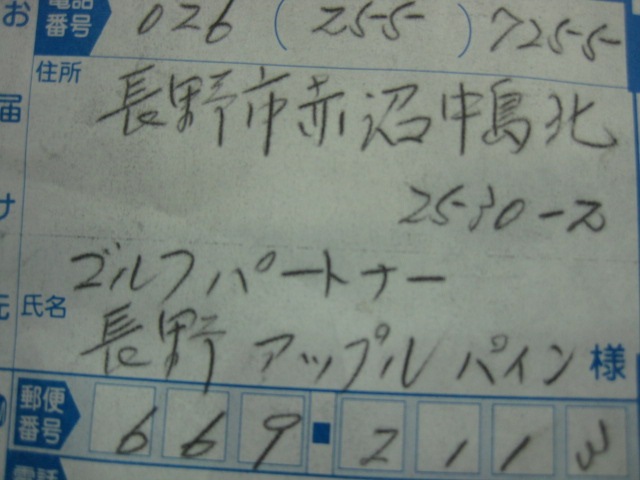 お 電話番号 026 (255) 7255
住所
届 長野市赤沼中島北
2530-2
ゴルフパートナー
氏名 長野アップルパイン 様
郵便番号 669-2113
電話